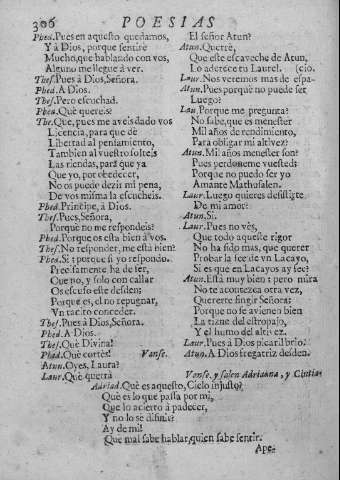 306 POESIAS
Phed. Pues en aquesto quedamos,
Y à Dios, porque sentirè
Mucho, que hablando con vos,
Alguno me llegue à ver.
Thes. Pues à Dios, Señora,
Phed. A Dios.
Thes. Pero escuchad.
Phed. Què quereis?
The. Que, pues me aveis dado vos
Licencia, para que de
Libertad al pensamiento,
Tambien al vuelto solteis
Las riendas, para que ya
Que yo, por obedecer,
No os puede dezir mi pena,
De vos misma la escucheis.
Phed. Principe, à Dios.
Thes. Pues, Señora,
Porquè no me respondeis?
Phed. Porque os està bien à vos.
Thes. No responder, me està bien?
Phed. Si; porque si yo respondo.
Precisamente ha de ser,
Que no, y solo con callar
Os escuso este desden;
Porque es, el no repugnar,
Vn tacito conceder.
Thes. Pues à Dios, Señora.
Phed. A Dios.
Thes. Què Divina!
Phed. Què cortès! Vanse.
Atun. Oyes, Laura?
Laur. Què querrà
El señor Atun?
Atun. Querrè,
Que este escaveche de Atun,
Lo aderece tu Laurel. (cio.
Laur. Nos veremos mas de espa-
Atun. Pues porquè no puede ser
Luego?
Lau. Porque me pregunta?
No sabe, que es menester
Mil años de rendimiento,
Para obligar mi altivez?
Atun. Mil años menester son?
Pues perdoneme vuestedt
Porque no puedo ser yo
Amante Mathusalen.
Laur. Luego quieres desistirte
De mi amor?
Atun. Si.
Laur. Pues no vès,
Que todo aqueste rigor
No ha sido mas, que querer
Probar la fee de vn Lacayo,
Si es que en Lacayos ay fee?
Atun. Està muy bien; pero mira
No te acontezca otra vez,
Quererte fingir Señora;
Porque no se avienen bien
La tizne del estropajo,
Y el humo del altivez.
Laur. Pues à Dios picaril brio.
Atun. A Dios fregatriz desden.
Vanse, y salen Adrianna, y Cintia.
Adriad. Què es aquesto, Cielo injusto?
Què es lo que passa por mi,
Que lo acierto à padecer,
Y no lo sè difinir?
Ay de mi!
Que mal sabe hablar, quien sabe sentir.
Ape-